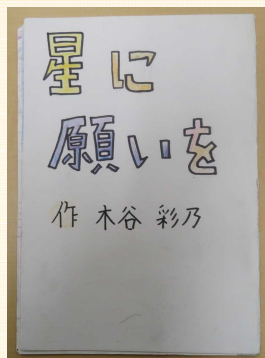 星に
願いを
作 木谷 彩乃